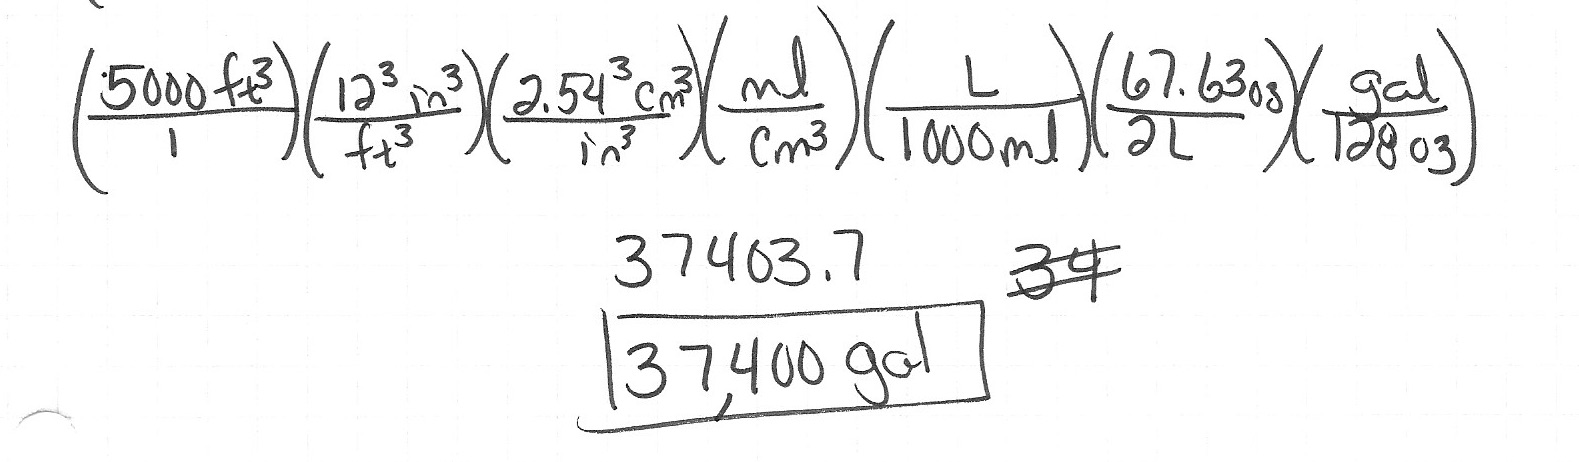 (5000 ft³/1)(12³ in³/ft³)(2.54³ cm³/in³)(ml/cm³)(L/1000 ml)(67.63 oz/2L)(gal/128 oz)
37403.7 ~~34~~
37,400 gal